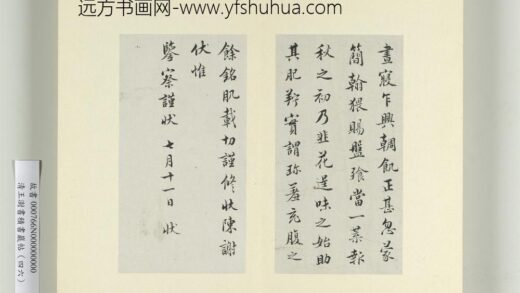 远方书画网-www.yfshuhua.com
晝寢乍興朝飢正甚忽蒙
簡翰猥賜盤飧當一葉報
秋之初乃韭花逞味之始助
其肥羜實謂珍羞充腹之
餘銘肌載切謹修狀陳謝
伏惟
鑒察謹狀 七月十一日 狀
故書 000766N000000000
清王澍書積書巖帖（四六）